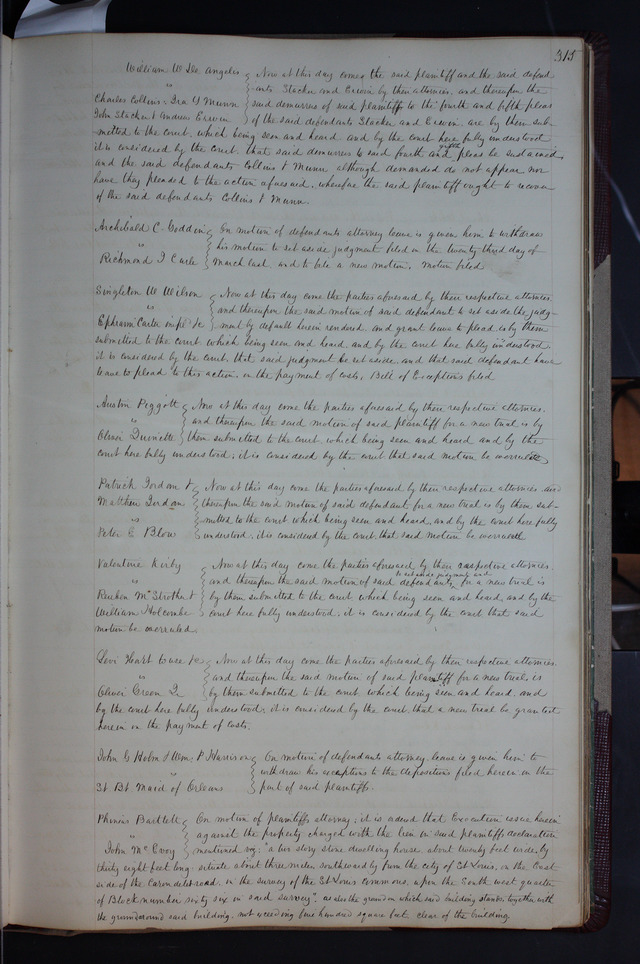 313
William W De Angelis Now at this day comes the said plaintiff and the said defend
vs ants Stacker and Erwin by their attornies, and thereupon the
Charles Collins, Ira Y Munn said demurrer of said plaintiffs to the fourth and fifth pleas
John Stacker & Andrew Erwin of the said defendants Stacker and Erwin, are by them sub-
mitted to the court, which being seen and heard and by the court here fully understood
it is considered by the court that said demurrer to said fourth and fifth pleas be sustained,
and the said defendants Collins & Munn although demanded do not appear nor
have they pleaded to the action aforesaid, wherefore the said plaintiff ought to recover
of the said defendants Collins & Munn.
Archibald C. Goddin On motion of defendants attorney leave is given him to withdraw
vs his motion to set aside judgment filed on the twenty third day of
Richmond J Curle March last and to file a new motion, motion filed
Singleton W Wilson Now at this day come the parties aforesaid by their respective attornies,
vs and thereupon the said motion of said defendant to set aside the judg-
Ephraim Carter impl &c ment by default herein rendered and grant leave to plead is by them
submitted to the court, which being seen and heard and by the court here fully understood
it is considered by the court, that said judgment be set aside, and that said defendant have
leave to plead to this action, on the payment of costs, Bill of Exceptions filed
Austin Piggott Now at this day come the parties aforesaid by their respective attornies,
vs and thereupon the said motion of said plaintiff for a new trial is by
them submitted to the court which being seen and heard and by the
court here fully understood, it is considered by the court that said motion be overruled
Patrick Jordan & Now at this day come the parties aforesaid by their respective attornies and
Matthew Jordan thereupon the said motion of said defendant for a new trial is by them sub-
vs mitted to the court which being seen and heard, and by the court here fully
Peter E Blow understood, it is considered by the court, that said motion be overruled
Valentine Kirby Now at this day come the parties aforesaid by their respective attornies,
vs and thereupon the said motion of said defendants, to set aside judgment and for a new trial is
Reuben McStrother & by them submitted to the court which being seen and heard, and by the
William Holcombe court here fully understood, it is considered by the court that said
motion be overruled.
Levi Hart to use &c Now at this day come the parties aforesaid by their respective attornies
vs and thereupon the said motion of said plaintiff for a new trial is
Oliver Green Jr by them submitted to the court, which being seen and heard, and
by the court here fully understood, it is considered by the court, that a new trial be granted
herein on the payment of costs.
John G Holm & Wm. P Harrison On motion of defendants attorney leave is given him to
vs withdraw his exceptions to the depositions filed herein on the
St Bt Maid of Orleans part of said plaintiffs.
Phineas Bartlett On motion of plaintiffs attorney, it is ordered that Execution issue herein
vs against the property charged with the lien in said plaintiffs declaration
John McEvoy mentioned viz; "a two story stone dwelling house about twenty feet wide, by
thirty eight feet long, situate about three miles southwardly from the city of St Louis, on the East
side of the Carondelet road, in the survey of the St Louis Commons, upon the South west quarter
of Block number sixty six in said survey", as also the ground on which said building stands together with
the ground around said building, not exceeding five hundred square feet clear of the building.